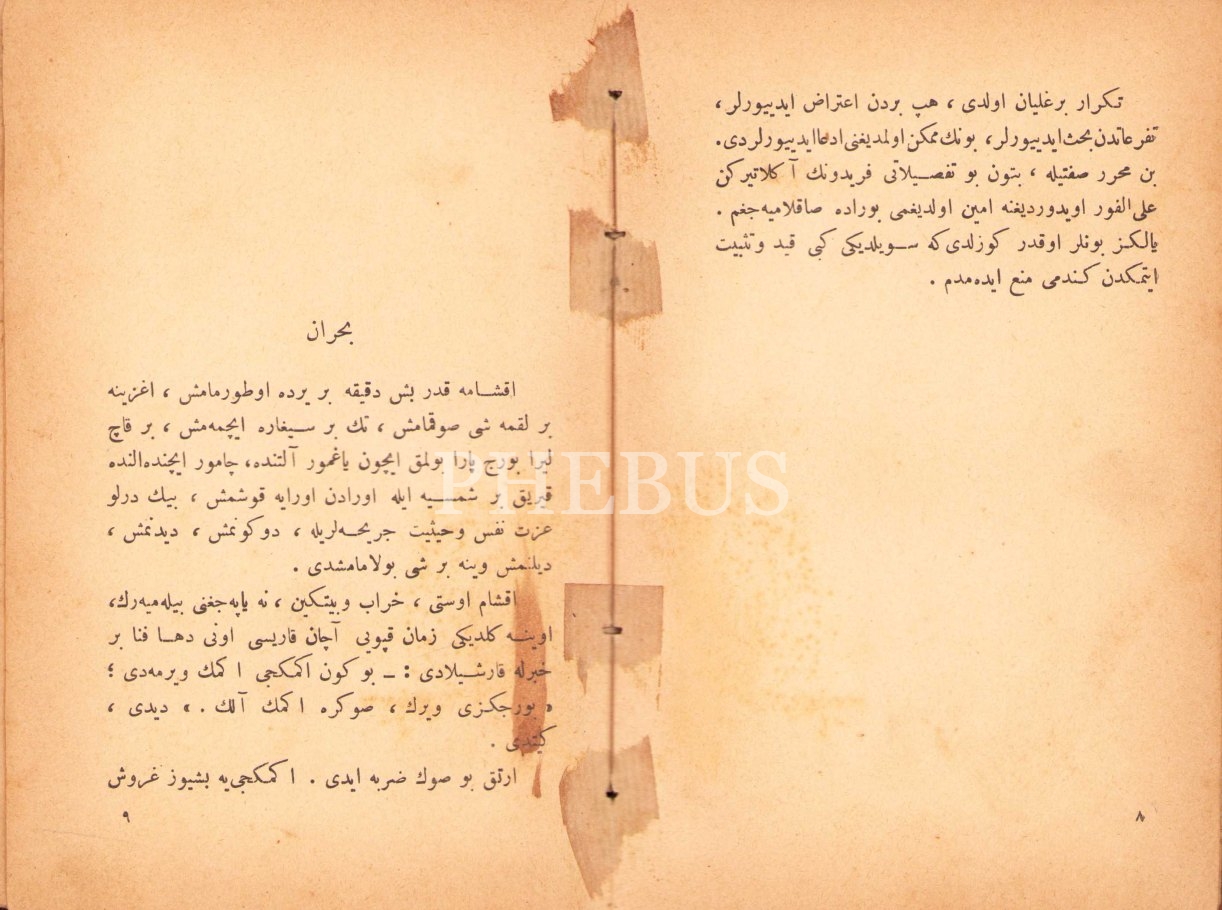 تكرار بر غليان اولدی ، هپ بردن اعتراض ايدييورلر ،
تفرعاتدن بحث ايدييورلر، بونك ممكن اولمديغنی ادعا ايدييورلردی.
بن محرر صفتيله ، بتون بو تفصيلاتی فريدونك آ كلاتيركن
علی الفور اويدورديغنه امين اولديغمی بوراده صاقلاميه جغم .
يالكز بونلر اوقدر كوزلدی كه سويلديكی كبی قيد و تثبيت
ايتمكدن كندمی منع ايده مدم .
٨
بحران
اقشامه قدر بش دقيقه بر يرده اوطورمامش ، اغزينه
بر لقمه شی صوقمامش ، تك بر سيغاره ايچمه مش ، بر قاچ
ليرا بورج پارا بولمق ايچون ياغمور آلتنده، چامور ايچنده النده
قيريق بر شمسيه ايله اورادن اورايه قوشمش ، بيك درلو
عزت نفس و حيثيت جريحه لريله ، دوكونمش ، ديدنمش ،
ديلنمش وينه بر شی بولامامشدی .
اقشام اوستی ، خراب و بيتكين ، نه ياپه جغنی بيله ميه رك،
اوينه كلديكی زمان قپويی آچان قاريسی اونی دها فنا بر
خبرله قارشيلادی : ـ بو كون اكمكجی ا كمك ويرمه دی ؛
« بورجكزی ويرك ، صوكره ا كمك آلك . » ديدی ،
كيتدی .
ارتق بو صوك ضربه ايدی . ا كمكجی يه بشيوز غروش
٩
PHEBUS